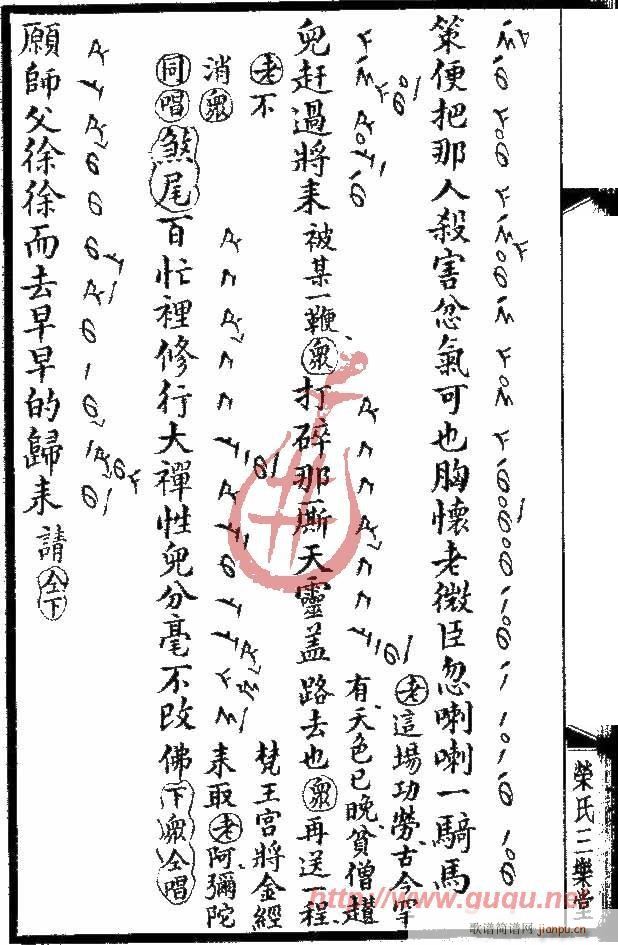 策便把那人殺害忿氣可也胸懷老微臣忽喇喇一騎馬
兒赶過將来被某一鞭眾打碎那厮天靈蓋
老這場功勞古今罕
有天色已晚貧僧趲
路去也眾再送一程
老不
消眾
同唱煞尾百忙裡修行大禪性兒分毫不改
梵王宮將金經
来取老阿彌陀
佛下眾仝唱
願師父徐徐而去早早的歸来請仝下
榮氏三樂堂
http://www.guqu.net
歌谱简谱网
jianpu.cn